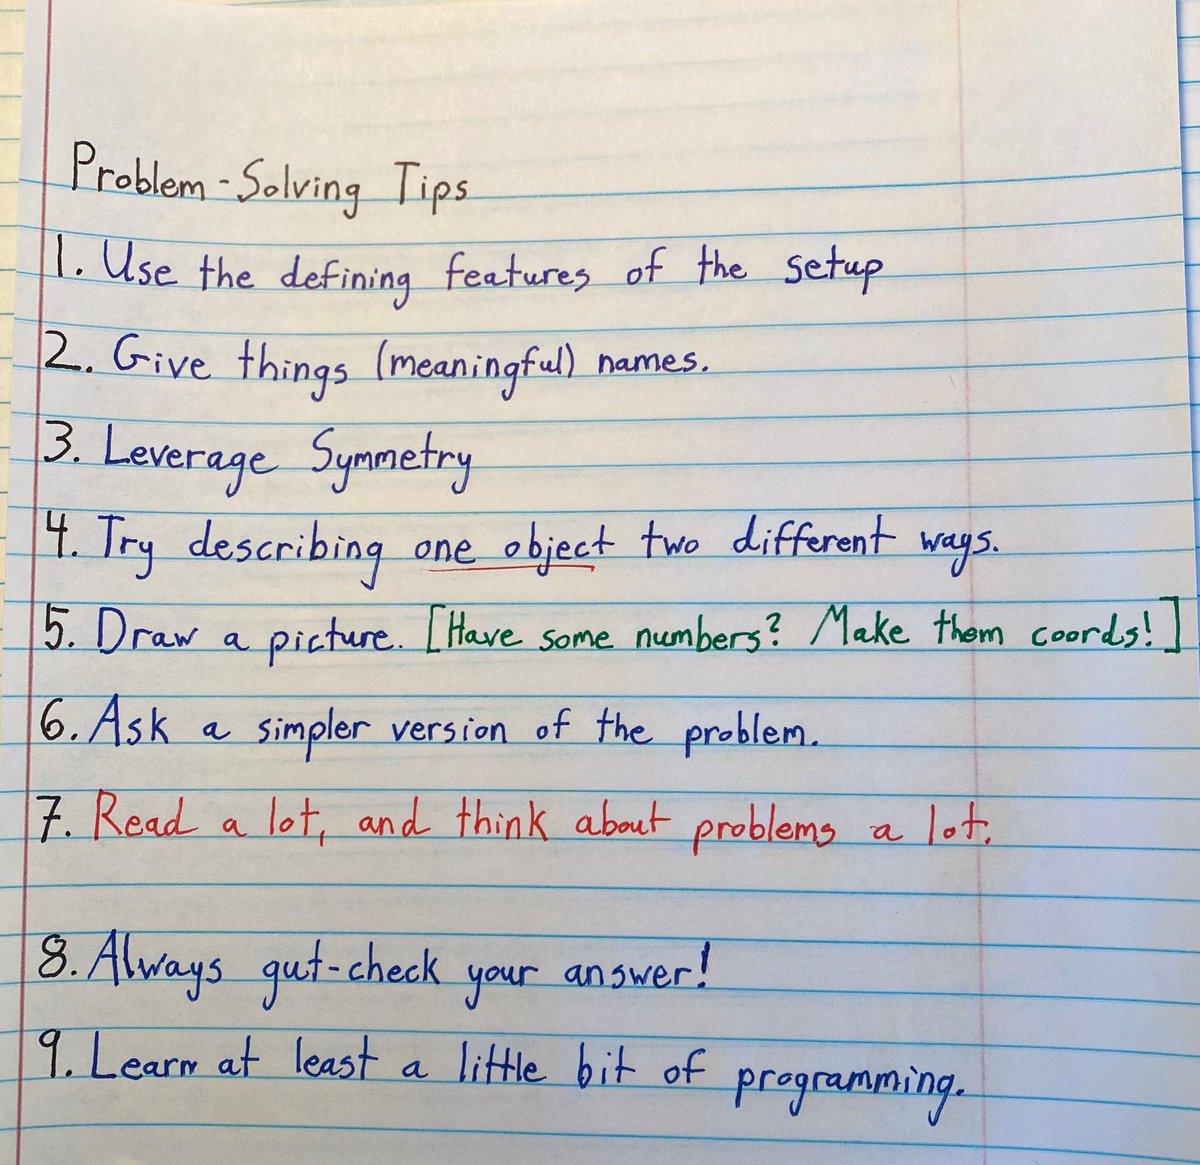 Problem-Solving Tips
1. Use the defining features of the setup
2. Give things (meaningful) names.
3. Leverage Symmetry
4. Try describing one object two different ways.
5. Draw a picture. [Have some numbers? Make them coords!]
6. Ask a simpler version of the problem.
7. Read a lot, and think about problems a lot.
8. Always gut-check your answer!
9. Learn at least a little bit of programming.